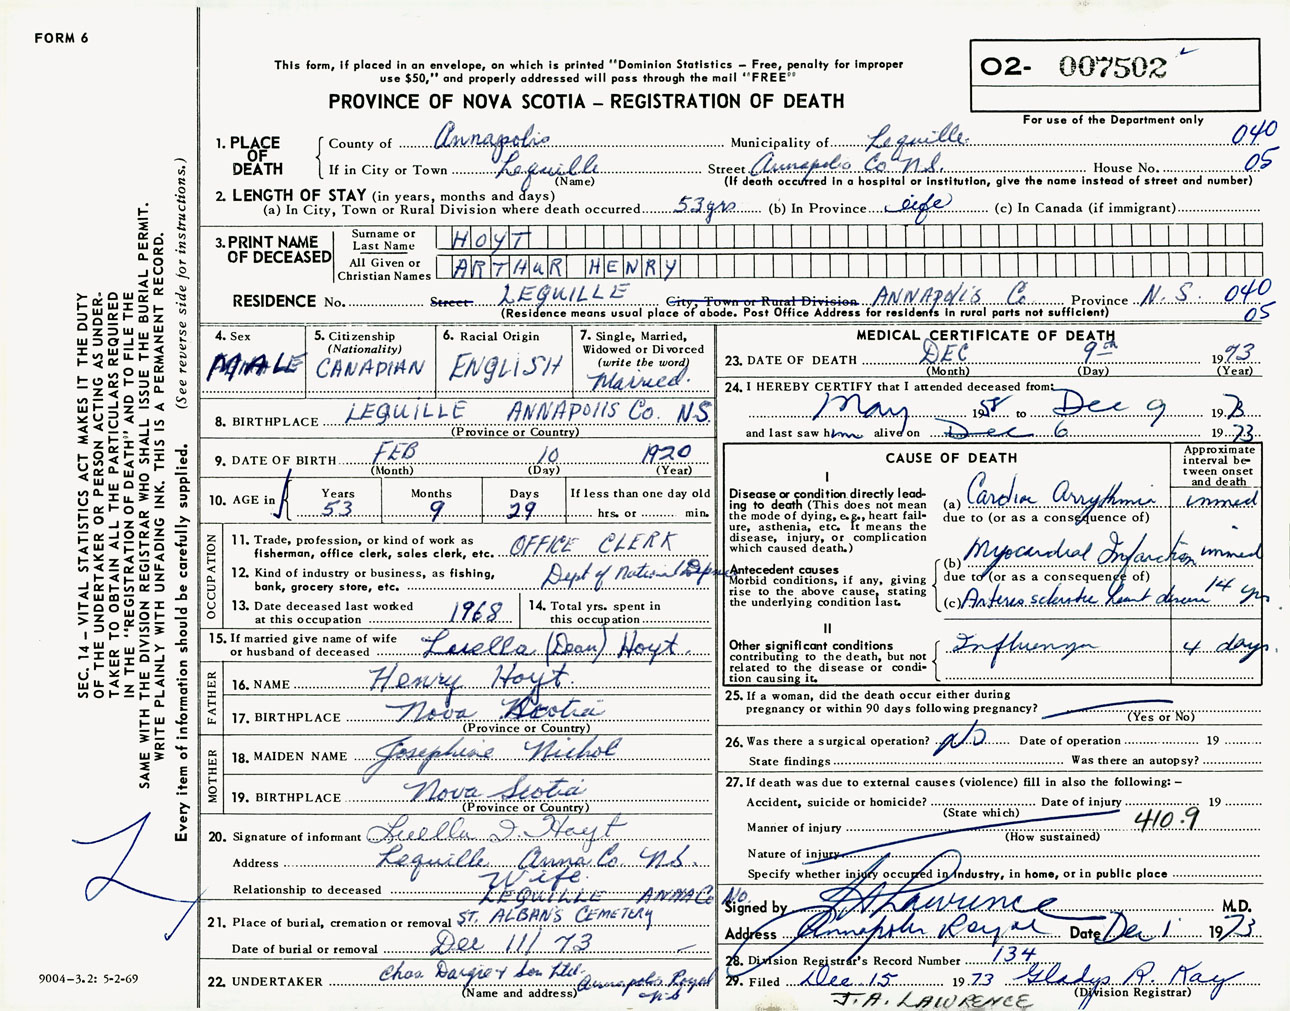 FORM 6
This form, if placed in an envelope, on which is printed "Dominion Statistics – Free, penalty for improper
use $50," and properly addressed will pass through the mail "FREE"
PROVINCE OF NOVA SCOTIA – REGISTRATION OF DEATH
02- 007502
For use of the Department only
1. PLACE OF DEATH
County of Annapolis Municipality of Lequille 040
If in City or Town Lequille Street Annapolis Co N.S. House No. 05
(Name) (If death occurred in a hospital or institution, give the name instead of street and number)
2. LENGTH OF STAY (in years, months and days)
(a) In City, Town or Rural Division where death occurred 53 yrs (b) In Province life (c) In Canada (if immigrant)
3. PRINT NAME OF DECEASED
Surname or Last Name HOYT
All Given or Christian Names ARTHUR HENRY
RESIDENCE No. Street LEQUILLE City, Town or Rural Division ANNAPOLIS Co Province N.S. 040
(Residence means usual place of abode. Post Office Address for residents in rural parts not sufficient) 05
4. Sex
MALE
5. Citizenship
(Nationality)
CANADIAN
6. Racial Origin
ENGLISH
7. Single, Married,
Widowed or Divorced
(write the word)
Married.
8. BIRTHPLACE LEQUILLE ANNAPOLIS Co. N.S.
(Province or Country)
9. DATE OF BIRTH FEB 10 1920
(Month) (Day) (Year)
10. AGE in
Years 53
Months 9
Days 29
If less than one day old
hrs. or min.
OCCUPATION
11. Trade, profession, or kind of work as
fisherman, office clerk, sales clerk, etc. OFFICE CLERK
12. Kind of industry or business, as fishing,
bank, grocery store, etc. Dept of National
13. Date deceased last worked
at this occupation 1968
14. Total yrs. spent in
this occupation
15. If married give name of wife
or husband of deceased Luella (Dean) Hoyt.
FATHER
16. NAME Henry Hoyt.
17. BIRTHPLACE Nova Scotia
(Province or Country)
MOTHER
18. MAIDEN NAME Josephine Nichol
19. BIRTHPLACE Nova Scotia
(Province or Country)
20. Signature of informant Luella I. Hoyt
Address Lequille Anna Co NS.
Relationship to deceased Wife.
LEQUILLE ANNA Co N.S.
21. Place of burial, cremation or removal ST. ALBAN'S CEMETERY
Date of burial or removal Dec 11/73
22. UNDERTAKER Chas Dargie & Son Ltd. Annapolis Royal
(Name and address) NS
MEDICAL CERTIFICATE OF DEATH
23. DATE OF DEATH DEC 9th 1973
(Month) (Day) (Year)
24. I HEREBY CERTIFY that I attended deceased from:
May 1958 to Dec 9 1973
and last saw him alive on Dec 6 1973
CAUSE OF DEATH
Approximate
interval be-
tween onset
and death
I
Disease or condition directly lead-
ing to death (This does not
mean the mode of dying, e.g., heart fail-
ure, asthenia, etc. It means the
disease, injury, or complication
which caused death.)
(a) Cardiac Arrythmia immed
due to (or as a consequence of)
(b) Myocardial Infarction immed
Antecedent causes
Morbid conditions, if any, giving
rise to the above cause, stating
the underlying condition last.
due to (or as a consequence of)
(c) Arteriosclerotic heart disease 14 yrs.
II
Other significant conditions
contributing to the death, but not
related to the disease or condi-
tion causing it.
Influenza 4 days.
25. If a woman, did the death occur either during
pregnancy or within 90 days following pregnancy?
(Yes or No)
26. Was there a surgical operation? No Date of operation 19
State findings Was there an autopsy?
27. If death was due to external causes (violence) fill in also the following: –
Accident, suicide or homicide? Date of injury 19
(State which)
Manner of injury 410.9
(How sustained)
Nature of injury
Specify whether injury occurred in industry, in home, or in public place
Signed by J A Lawrence M.D.
Address Annapolis Royal Date Dec 1 1973
28. Division Registrar's Record Number 134
29. Filed Dec 15 1973 Gladys R. Kay
(Division Registrar)
J.A. LAWRENCE
SEC. 14 – VITAL STATISTICS ACT MAKES IT THE DUTY
OF THE UNDERTAKER OR PERSON ACTING AS UNDER-
TAKER TO OBTAIN ALL THE PARTICULARS REQUIRED
IN THE "REGISTRATION OF DEATH" AND TO FILE THE
SAME WITH THE DIVISION REGISTRAR WHO SHALL ISSUE THE BURIAL PERMIT.
WRITE PLAINLY WITH UNFADING INK. THIS IS A PERMANENT RECORD.
Every item of information should be carefully supplied. (See reverse side for instructions.)
9004-3.2: 5-2-69